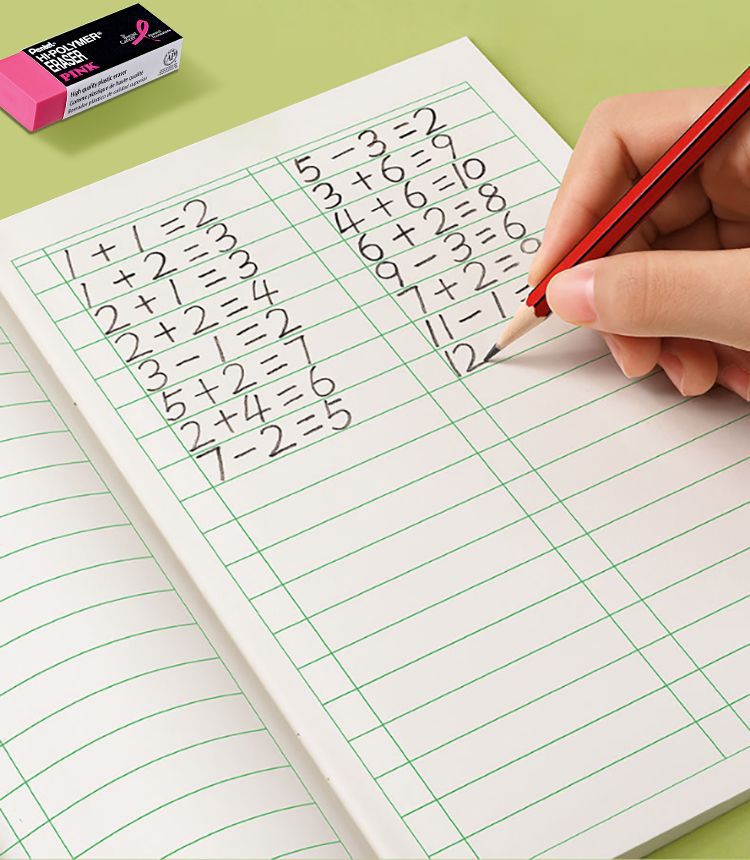 Pentel®
HI-POLYMER®
ERASER
PINK
High quality plastic eraser
Gomme plastique de haute qualité
Borrador plástico de calidad superior
1 + 1 = 2
1 + 2 = 3
2 + 1 = 3
2 + 2 = 4
3 - 1 = 2
5 + 2 = 7
2 + 4 = 6
7 - 2 = 5
5 - 3 = 2
3 + 6 = 9
4 + 6 = 10
6 + 2 = 8
9 - 3 = 6
7 + 2 = 9
11 - 1 =
12